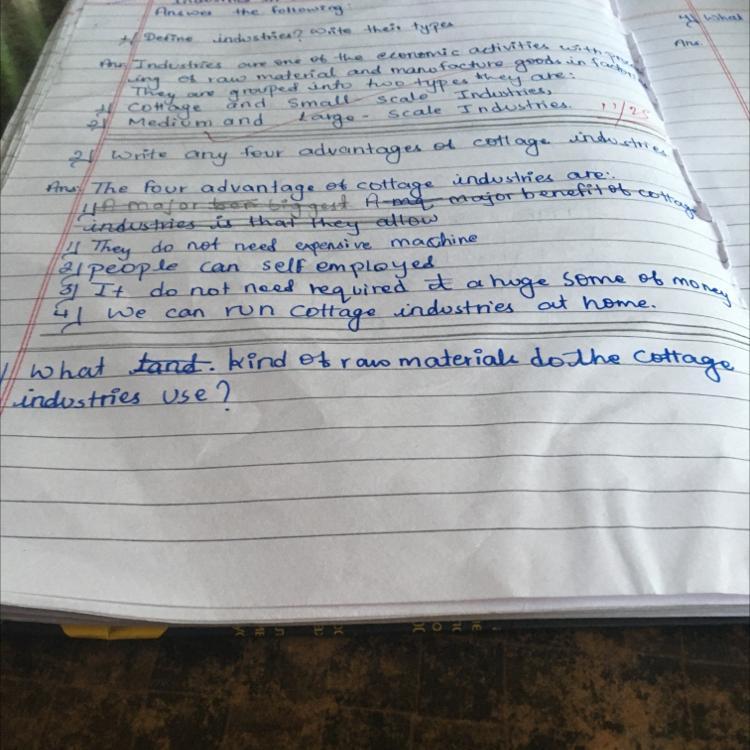 Answer the following:
1) Define industries? Write their types
Ans: Industries are one of the economic activities with
ing of raw material and manofacture goods in
They are grouped into two types they are:
1) Cottage and Small Scale Industries,
2) Medium and Large-Scale Industries.
2) Write any four advantages of cottage industries
Ans: The four advantage of cottage industries are:.
1) A major biggest A major benefit of cottage
industries is that they allow
1) They do not need expensive machine
2) people can self employed
3) It do not need required a huge some of money
4) We can run cottage industries at home.
What kind of raw materials do the cottage
industries use?
4) What
Ans.